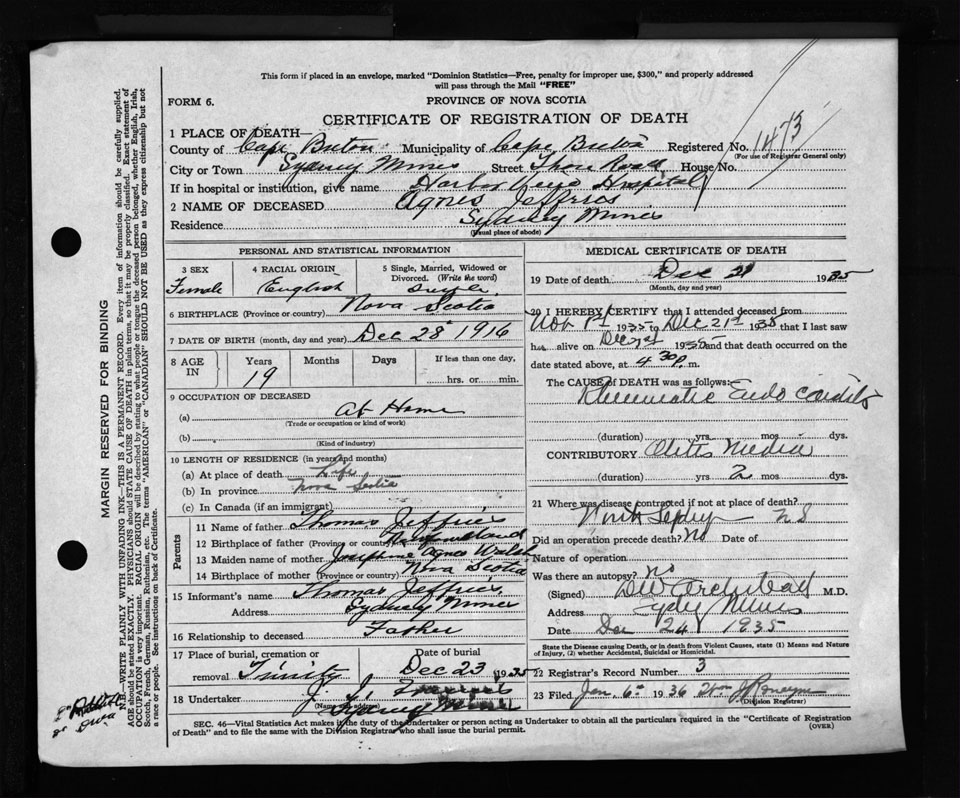 This form if placed in an envelope, marked "Dominion Statistics—Free, penalty for improper use, $300," and properly addressed
will pass through the Mail "FREE"
FORM 6.
PROVINCE OF NOVA SCOTIA
CERTIFICATE OF REGISTRATION OF DEATH
1 PLACE OF DEATH—
County of Cape Breton Municipality of Cape Breton Registered No. 1473
(For use of Registrar General only)
City or Town Sydney Mines Street Shore Road House No.
If in hospital or institution, give name Harbor View Hospital
2 NAME OF DECEASED Agnes Jeffries
Residence Sydney Mines
(Usual place of abode)
PERSONAL AND STATISTICAL INFORMATION
3 SEX Female
4 RACIAL ORIGIN English
5 Single, Married, Widowed or Divorced. (Write the word) Single
6 BIRTHPLACE (Province or country) Nova Scotia
7 DATE OF BIRTH (month, day and year) Dec 28 1916
8 AGE IN Years 19 Months Days If less than one day, hrs. or min.
9 OCCUPATION OF DECEASED
(a) At Home
(Trade or occupation or kind of work)
(b)
(Kind of industry)
10 LENGTH OF RESIDENCE (in years and months)
(a) At place of death Life
(b) In province Nova Scotia
(c) In Canada (if an immigrant)
Parents
11 Name of father Thomas Jeffries
12 Birthplace of father (Province or country) Newfoundland
13 Maiden name of mother Josephine Agnes Walsh
14 Birthplace of mother (Province or country) Nova Scotia
15 Informant's name Thomas Jeffries
Address Sydney Mines
16 Relationship to deceased Father
17 Place of burial, cremation or removal Trinity Date of burial Dec 23 1935
18 Undertaker J. J.
(Name and address)
Sydney Mines
MEDICAL CERTIFICATE OF DEATH
19 Date of death Dec 21 1935
(Month, day and year)
20 I HEREBY CERTIFY that I attended deceased from
Nov 1st 1935 to Dec 21st 1935 that I last saw
h alive on Dec 21st 1935 and that death occurred on the
date stated above, at 4 30 p. m.
The CAUSE of DEATH was as follows:
Rheumatic Endocarditis
(duration) yrs. mos. dys.
CONTRIBUTORY Otitis Media
(duration) yrs. 2 mos. dys.
21 Where was disease contracted if not at place of death?
North Sydney N S
Did an operation precede death? No Date of
Nature of operation
Was there an autopsy? No
(Signed) DW Archibald M.D.
Address Sydney Mines
Date Dec 24 1935
State the Disease causing Death, or in death from Violent Causes, state (1) Means and Nature
of Injury, (2) whether Accidental, Suicidal or Homicidal.
22 Record Number 3
23 Filed Jan. 6th 1936
(Division Registrar)
SEC. 46—Vital Statistics Act makes it the duty of the Undertaker or person acting as Undertaker to obtain all the particulars required in the "Certificate of Registration
of Death" and to file the same with the Division Registrar who shall issue the burial permit.
(OVER)
MARGIN RESERVED FOR BINDING
N.B.—WRITE PLAINLY WITH UNFADING INK—THIS IS A PERMANENT RECORD. Every item of information should be carefully supplied.
AGE should be stated EXACTLY. PHYSICIANS should STATE CAUSE OF DEATH in plain terms, so that it may be properly classified. Exact statement of
OCCUPATION is very important. RACIAL ORIGIN will be described by stating to what people or tongue the deceased person belonged, whether English, Irish,
Scotch, French, German, Russian, Ruthenian, etc. The terms "AMERICAN" or "CANADIAN" SHOULD NOT BE USED as they express citizenship but not
a race or people. See instructions on back of Certificate.